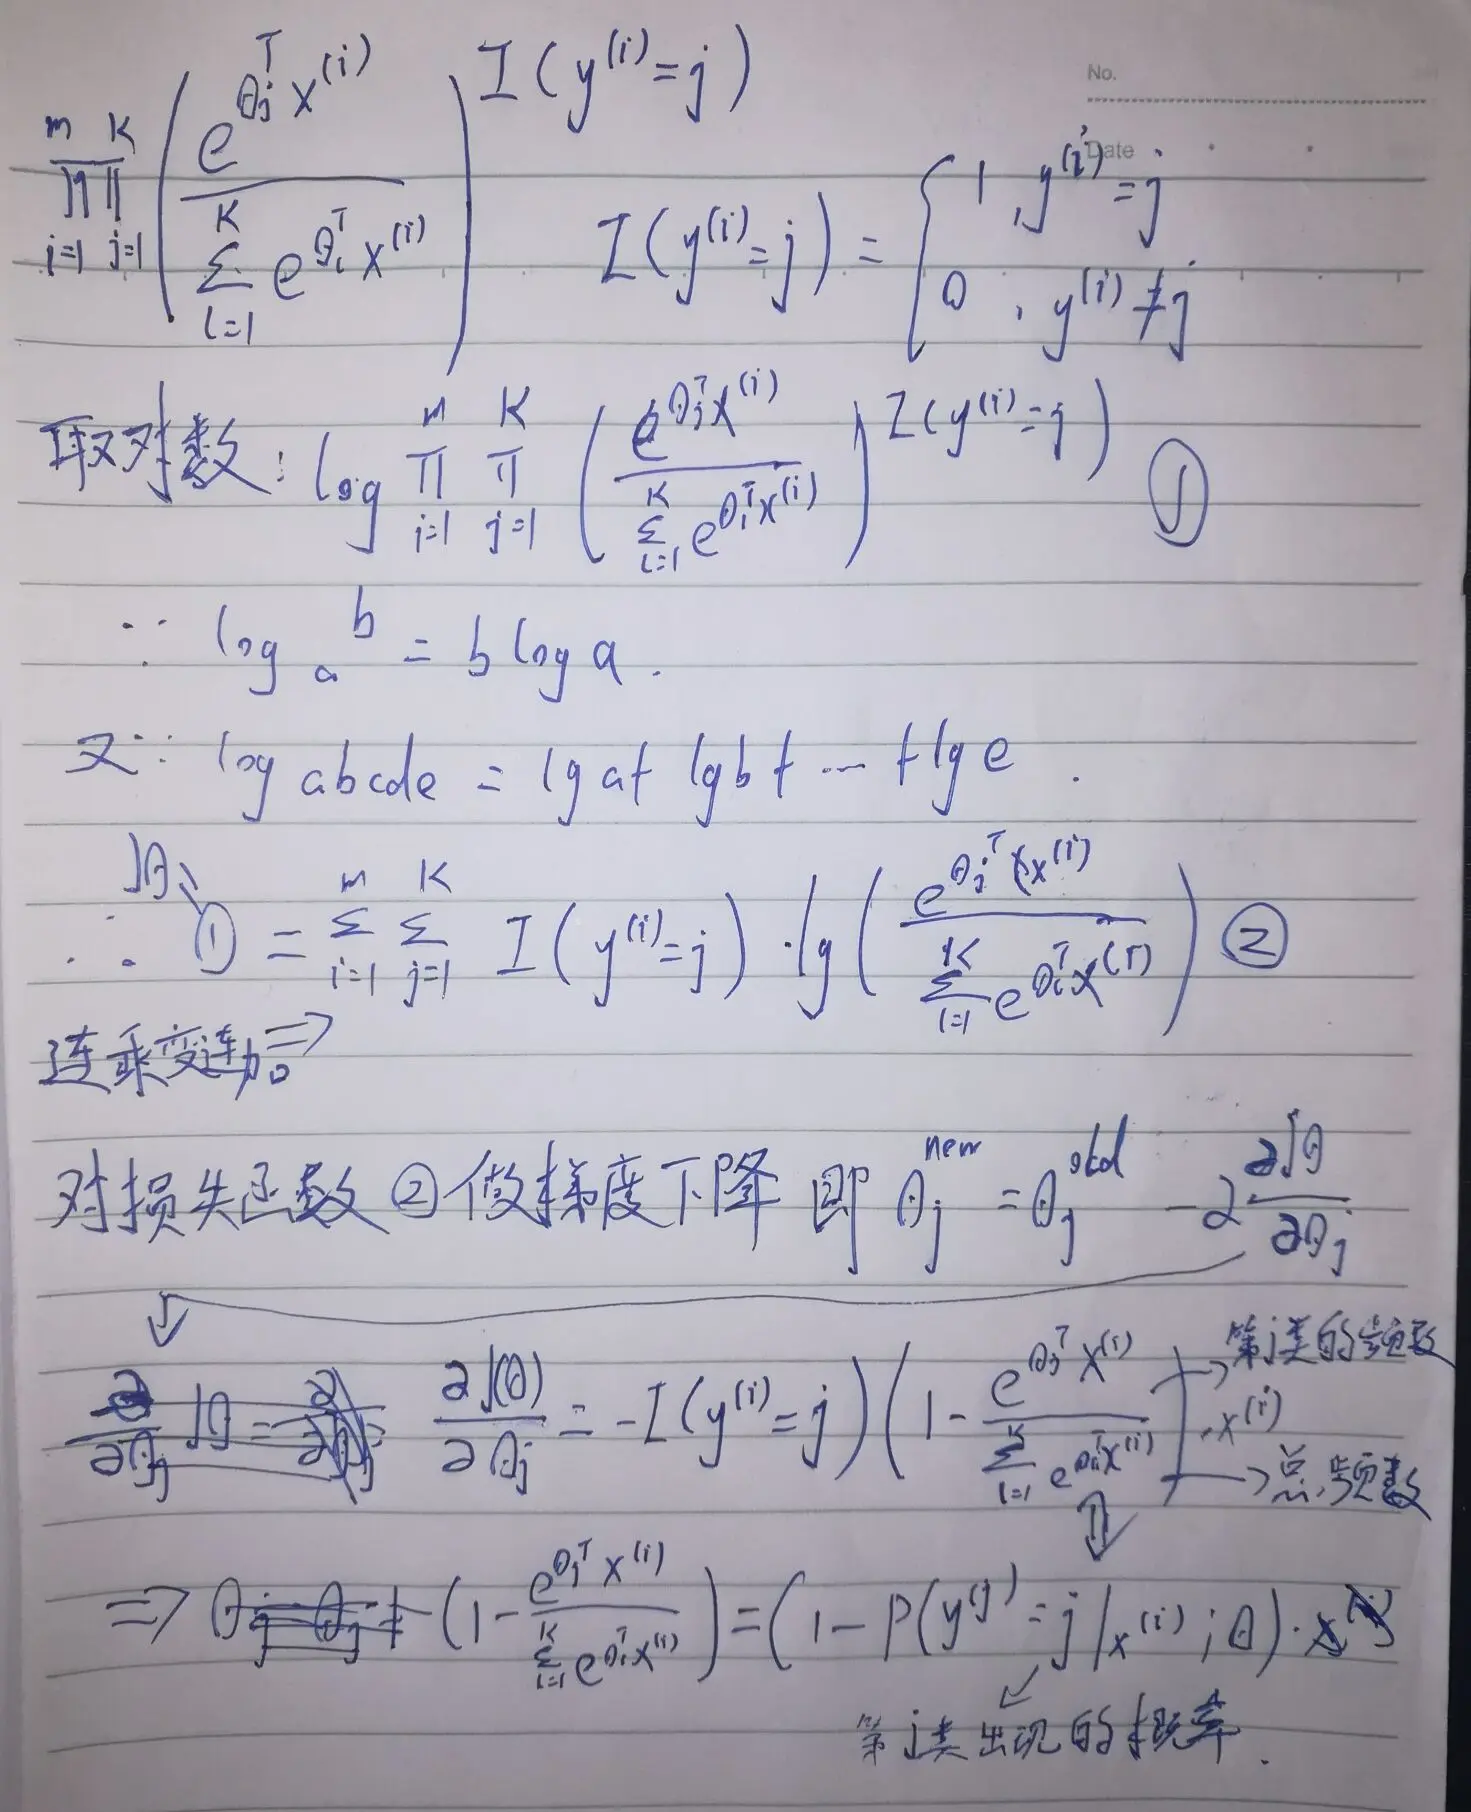 No.
Date
∏_{i=1}^{m} ∏_{j=1}^{K} ( e^{θ_j^T x^{(i)}} / Σ_{l=1}^{K} e^{θ_l^T x^{(i)}} )^{I(y^{(i)}=j)}
I(y^{(i)}=j) = { 1, y^{(i)}=j
0, y^{(i)}≠j
取对数: log ∏_{i=1}^{m} ∏_{j=1}^{K} ( e^{θ_j^T x^{(i)}} / Σ_{l=1}^{K} e^{θ_l^T x^{(i)}} )^{I(y^{(i)}=j)} ①
∵ log a^b = b log a.
又∵ log abcde = lg a + lg b + … + lg e.
Jθ
∴ ① = Σ_{i=1}^{m} Σ_{j=1}^{K} I(y^{(i)}=j) · lg ( e^{θ_j^T x^{(i)}} / Σ_{l=1}^{K} e^{θ_l^T x^{(i)}} ) ②
连乘变连加 ⇒
对损失函数②做梯度下降 即 θ_j^{new} = θ_j^{old} - α ∂Jθ/∂θ_j
∂J(θ)/∂θ_j = -I(y^{(i)}=j) ( 1 - e^{θ_j^T x^{(i)}} / Σ_{l=1}^{K} e^{θ_l^T x^{(i)}} ) · x^{(i)}
→ 第j类的频数
→ 总频数
⇒ ( 1 - e^{θ_j^T x^{(i)}} / Σ_{l=1}^{K} e^{θ_l^T x^{(i)}} ) = (1 - P(y^{(j)}=j | x^{(i)}; θ) ·
第j类出现的概率.